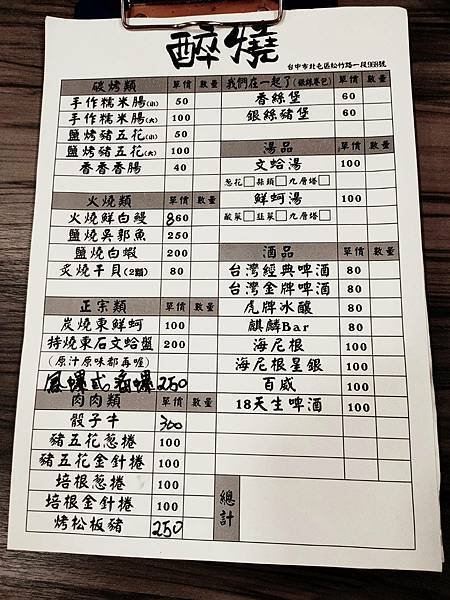 醉燒
台中市北屯區松竹路一段968號
碳烤類 單價 數量
手作糯米腸(小) 50
手作糯米腸(大) 100
鹽烤豬五花(小) 50
鹽烤豬五花(大) 100
香香香腸 40
火燒類 單價 數量
火燒鮮白鰻 860
鹽燒吳郭魚 250
鹽燒白蝦 200
炙燒干貝(2顆) 80
正宗類 單價 數量
炭燒東鮮蚵 100
持燒東石文蛤盤 200
(原汁原味都再喔)
鳳螺或香螺250
肉肉類 單價 數量
骰子牛 300
豬五花蔥捲 100
豬五花金針捲 100
培根蔥捲 100
培根金針捲 100
烤松板豬 250
我們在一起了(銀絲卷包) 單價 數量
香絲堡 60
銀絲豬堡 60
湯品 單價 數量
文蛤湯 100
蔥花□蒜頭□九層塔□
鮮蚵湯 100
酸菜□韭菜□九層塔□
酒品 單價 數量
台灣經典啤酒 80
台灣金牌啤酒 80
虎牌冰釀 80
麒麟Bar 80
海尼根 100
海尼根星銀 100
百威 100
18天生啤酒 100
總計